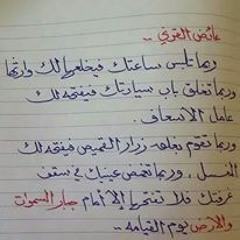 عائض القرني ..
وربما تلبس ساعتك فيخلعها لك وارثها
وربما تغلق باب سيارتك فيفتحه لك
عامل الاسعاف .
وربما تقوم بغلق زرار القميص فيفتحه لك
المغسل ، وربما تغمض عينيك في سقف
غرفتك فلا تفتحها إلا أمام جبار السموات
والأرض يوم القيامه ..